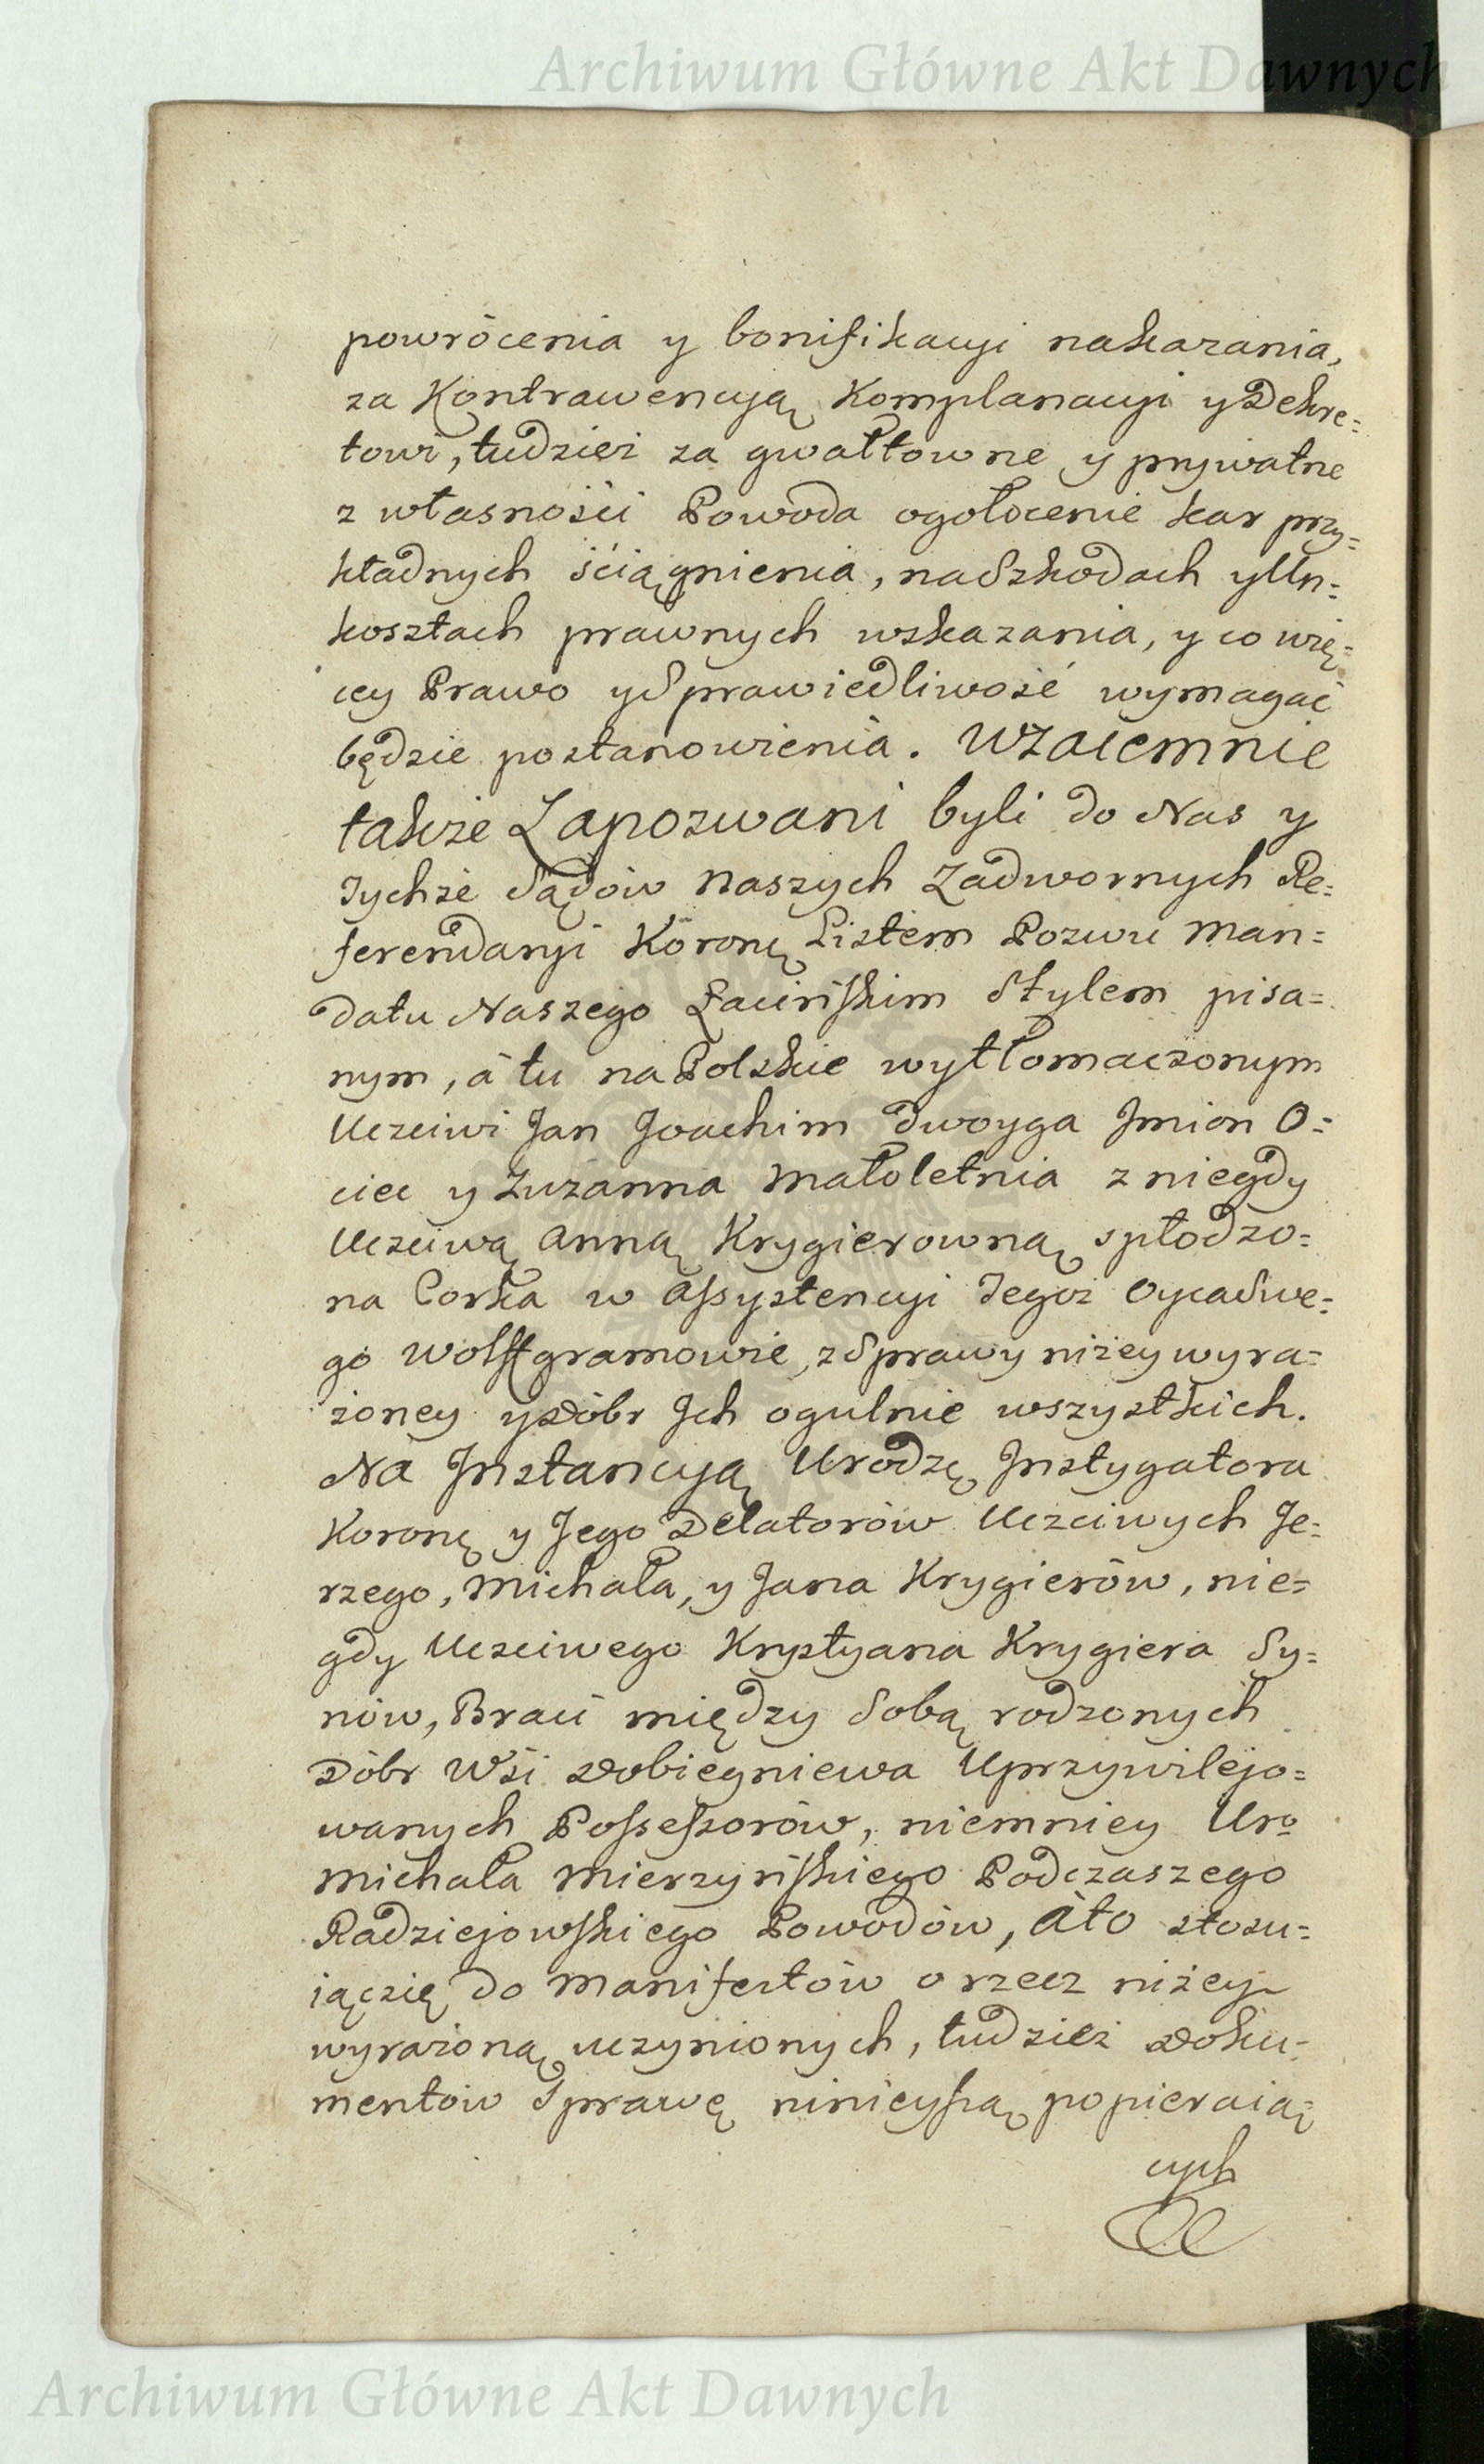 Archiwum Główne Akt Dawnych
powrócenia y bonifikacyi nakazania,
za Kontrawencyją Komplanacyi y Dekre=
towi, tudzież za gwałtowne y prywatne
z własności Powoda ogołocenie kar przy=
kładnych ściągnienia, na Szkodach y Un=
kosztach prawnych wskazania, y co wię=
cey Prawo y Sprawiedliwość wymagać
będzie postanowienia. Wzaiemnie
także Zapozwani byli do Nas y
Tychże Sądów Naszych Zadwornych Re=
ferendaryi Koronę Listem Pozwu Man=
datu Naszego Łacińskim Stylem pisa=
nym, á tu na Polskie wytłomaczonym
Uczciwi Jan Joachim dwoyga Jmion O=
ciec y Zuzanna Małoletnia z niegdy
Uczciwą Anną Krygierowną spłodzo=
na Corka w Assystencyi Tegoż Oyca Swe=
go Wolffgramowie, z Sprawy niżey wyra=
żoney y Dóbr Jch ogulnie wszystkich.
Na Jnstancyją Urodzę Jnstygatora
Koronę y Jego Delatorów Uczciwych Je=
rzego, Michała, y Jana Krygierów, nie=
gdy Uczciwego Krystyana Krygiera Sy=
nów, Braci między Sobą rodzonych
Dóbr Wsi Dobiegniewa Uprzywilejo=
wanych Possessorów, niemniey Uro
Michała Mierzyńskiego Podczaszego
Radziejowskiego Powodów, Áto stosu=
iączię do Manifestów o rzecz niżey
wyrażoną uczynionych, tudzież Doku=
mentów Sprawę ninieyszą popieraią=
cych
Archiwum Główne Akt Dawnych